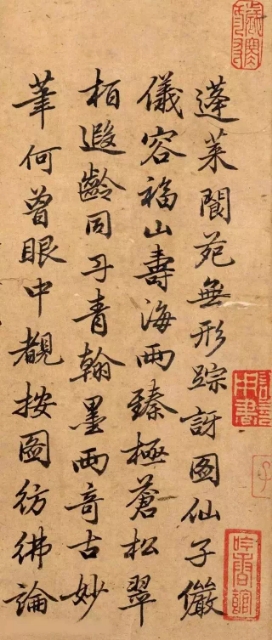 蓬萊閬苑無形踪訝圖仙子儼
儀容福山壽海兩臻極蒼松翠
栢遐齡同丹青翰墨兩奇古妙
筆何曾眼中覩按圖彷彿論